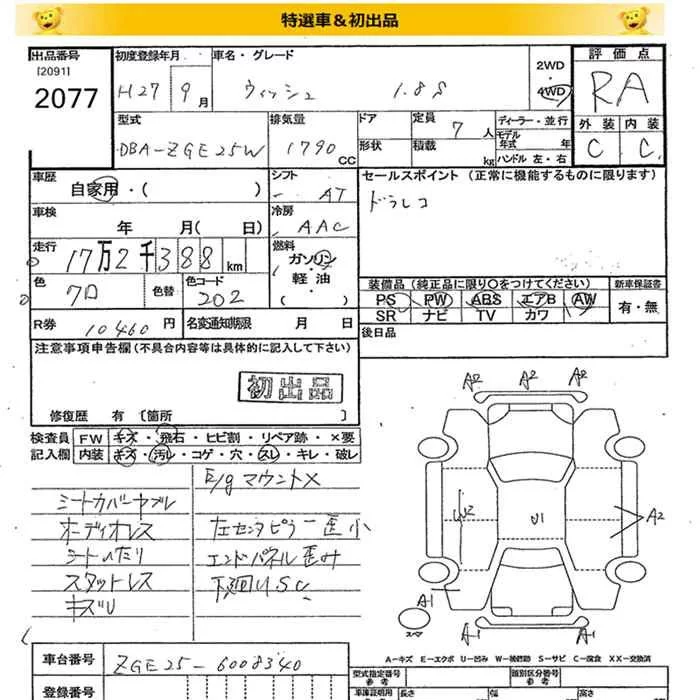 特選車&初出品
出品番号
[2091]
2077
初度登録年月
H27 9月
車名・グレード
ウィッシュ 1.8S
2WD
4WD
評価点
RA
外装 内装
C C
型式
DBA-ZGE25W
排気量
1790 CC
ドア
形状
定員 7人
積載 kg
ディーラー・並行
モデル年式 年
ハンドル 左・右
車歴
自家用・( )
シフト
AT
セールスポイント (正常に機能するものに限ります)
ドラレコ
車検
年 月( 日)
冷房
AAC
走行
17万2千388km
燃料
ガソリン
軽油
( )
色
7D
色替
色コード
202
装備品 (純正品に限り○をつけてください)
新車保証書
PS PW ABS エアB AW
有・無
SR ナビ TV カワ
R券 10460円
名変通知期限 月 日
後日品
注意事項申告欄 (不具合内容等は具体的に記入して下さい)
初出品
修復歴 有 [箇所 ]
検査員 FW キズ・飛石・ヒビ割・リペア跡・×要
記入欄 内装 キズ・汚レ・コゲ・穴・スレ・キレ・破レ
E/gマウント×
シートカバーヤブレ
オーディオレス
左センタピラー歪小
シートヘたり
エンドパネル歪み
スタットレス
下廻りU.S.C
キズU
A2 A2 A2
W2
U1
A2
A1
A1
スペア
A-キズ E-エクボ U-凹み W-補修跡 S-サビ C-腐食 XX-交換済
車台番号
ZGE25-6008340
登録番号
型式指定番号
参考
類別区分番号
参考
車庫証明用
参考
長さ
幅
高さ